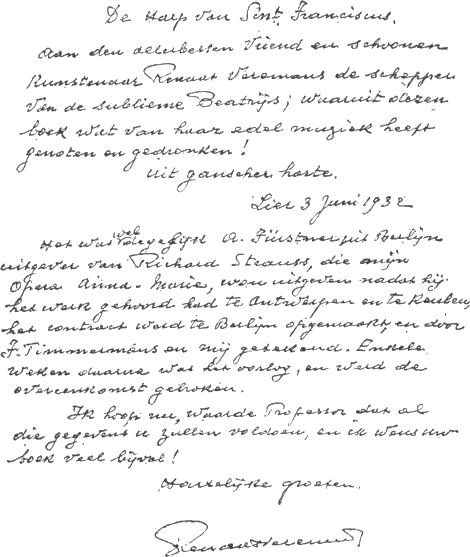 De Harp van Sint Franciscus.
Aan den allerbesten Vriend en schoonen
Kunstenaar Renaat Veremans de schepper
van de sublieme Beatrijs; waaruit dezen
boek wat van haar edel muziek heeft
genoten en gedronken!
Uit ganscher harte.
Lier 3 Juni 1932
Het was wel degelijk A. Fürstner uit Berlijn
uitgever van Richard Strauss, die mijn
Opera Anna-Marie, wou uitgeven nadat hij
het werk gehoord had te Antwerpen en te Keulen,
het contract werd te Berlijn opgemaakt, en door
F. Timmermans en mij getekend. Enkele
weken daarna was het oorlog, en werd de
overeenkomst gebroken.
Ik hoop nu, waarde Professor dat al
die gegevens u zullen voldoen, en ik wens uw
boek veel bijval!
Hartelijke groeten.
Renaat Veremans